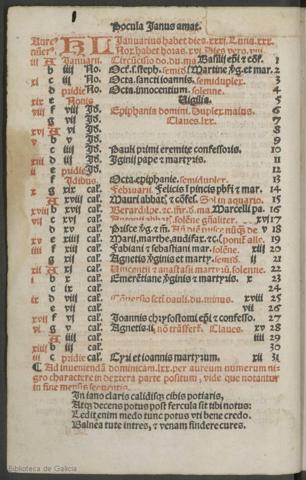 Pocula Janus amat.
Aure⁹ Januarius habet dies .xxxj. Luna .xxx.
nuer⁹. KL Nox habet horas .xvj. Dies vero .viij.
iij A Januarii. Circūcisio do. du. ma Basilij epi & cōf. 1
b iiij No. Oct. s. steph. semidu Martine vg. et mar. 2
xi c iij No. Octa. sancti ioannis. semiduplex. 3
d pridie No. Octa. innocentium. solenne. 4
xix e Nonis Vigilia. 5
viij f viij Js. Epiphania domini. Duplex maius. 6
g vij Js. Claues .lxx. 7
xvj A vj Js. 8
v b v Js. 9
c iiij Js. Pauli primi eremite confessoris. 10
xiij d iij Js. Iginij pape et martyris. 11
ij e pridie Js. 12
f Idibus. Octa. epiphanie. semiduplex. 13
x g xix cal. Februarii. Felicis ī pincis pbri & mar. 14
A xviij cal. Mauri abbatis & cōfes. Sol in aquario. 15
xviij b xvij cal. Marcelli pa. 16
vij c xvj cal. xviij 17
d xv cal. Prisce vg. & m̄. 18
xv e xiiij cal. 19
iiij f xiij cal. Fabiani & sebastiani mar. solēne. xiij 20
g xij cal. Agnetis vginis et marty. semis. ij 21
xij A xj cal. Uincentij & anastasij martyrū. solenne. 22
j b x cal. Emerētiane vginis & martyris. x 23
c ix cal. 24
ix d viij cal. Cōuersio scti pauli. du. minus. xviij 25
e vij cal. vij 26
xvij f vj cal. Joannis chrysostomi epi & confesso. 27
vj g v cal. Agnetis ij. nō trāsfert̄. Claues. xv 28
A iiij cal. iiij 29
xiiij b iij cal. 30
iij c pridie cal. Cyri et ioannis martyrum. xij 31
Ad inueniendā dominicam .lxx. per aureum numerum ni-
gro charactere in dextera parte positum, vide que notantur
in fine mensis sequentis.
In iano claris calidisqȝ cibis potiaris,
Atqȝ decens potus post fercula sit tibi notus:
Ledit enim medo tunc potus vti bene credo.
Balnea tute intres, & venam findere cures.
Biblioteca de Galicia